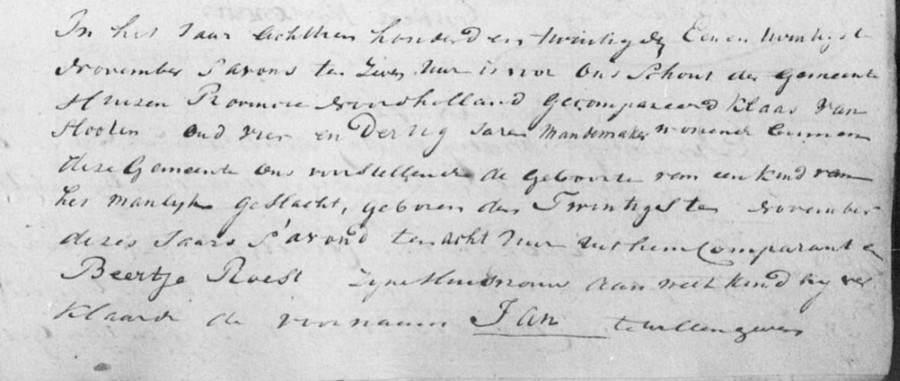 In het Jaar Achttien honderd en twintig den Een en twintigst
November s'avons ten Zeven Uur is voor Ons Schout der Gemeente
Huizen Provincie Noordholland gecompareerd Klaas van
Hooten oud vier en Dertig Jaren Mandemaker wonende binnen
deze Gemeente Ons voorstellende de geboorte van een kind van
het Manlyk Geslacht, geboren den Twintigsten November
dezes Jaars s'avond ten acht Uur uit hem Comparant en
Beertje Roest Zyne Huisvrouw aan welk kind hy ver
klaarde de voornaam Jan te willen geven